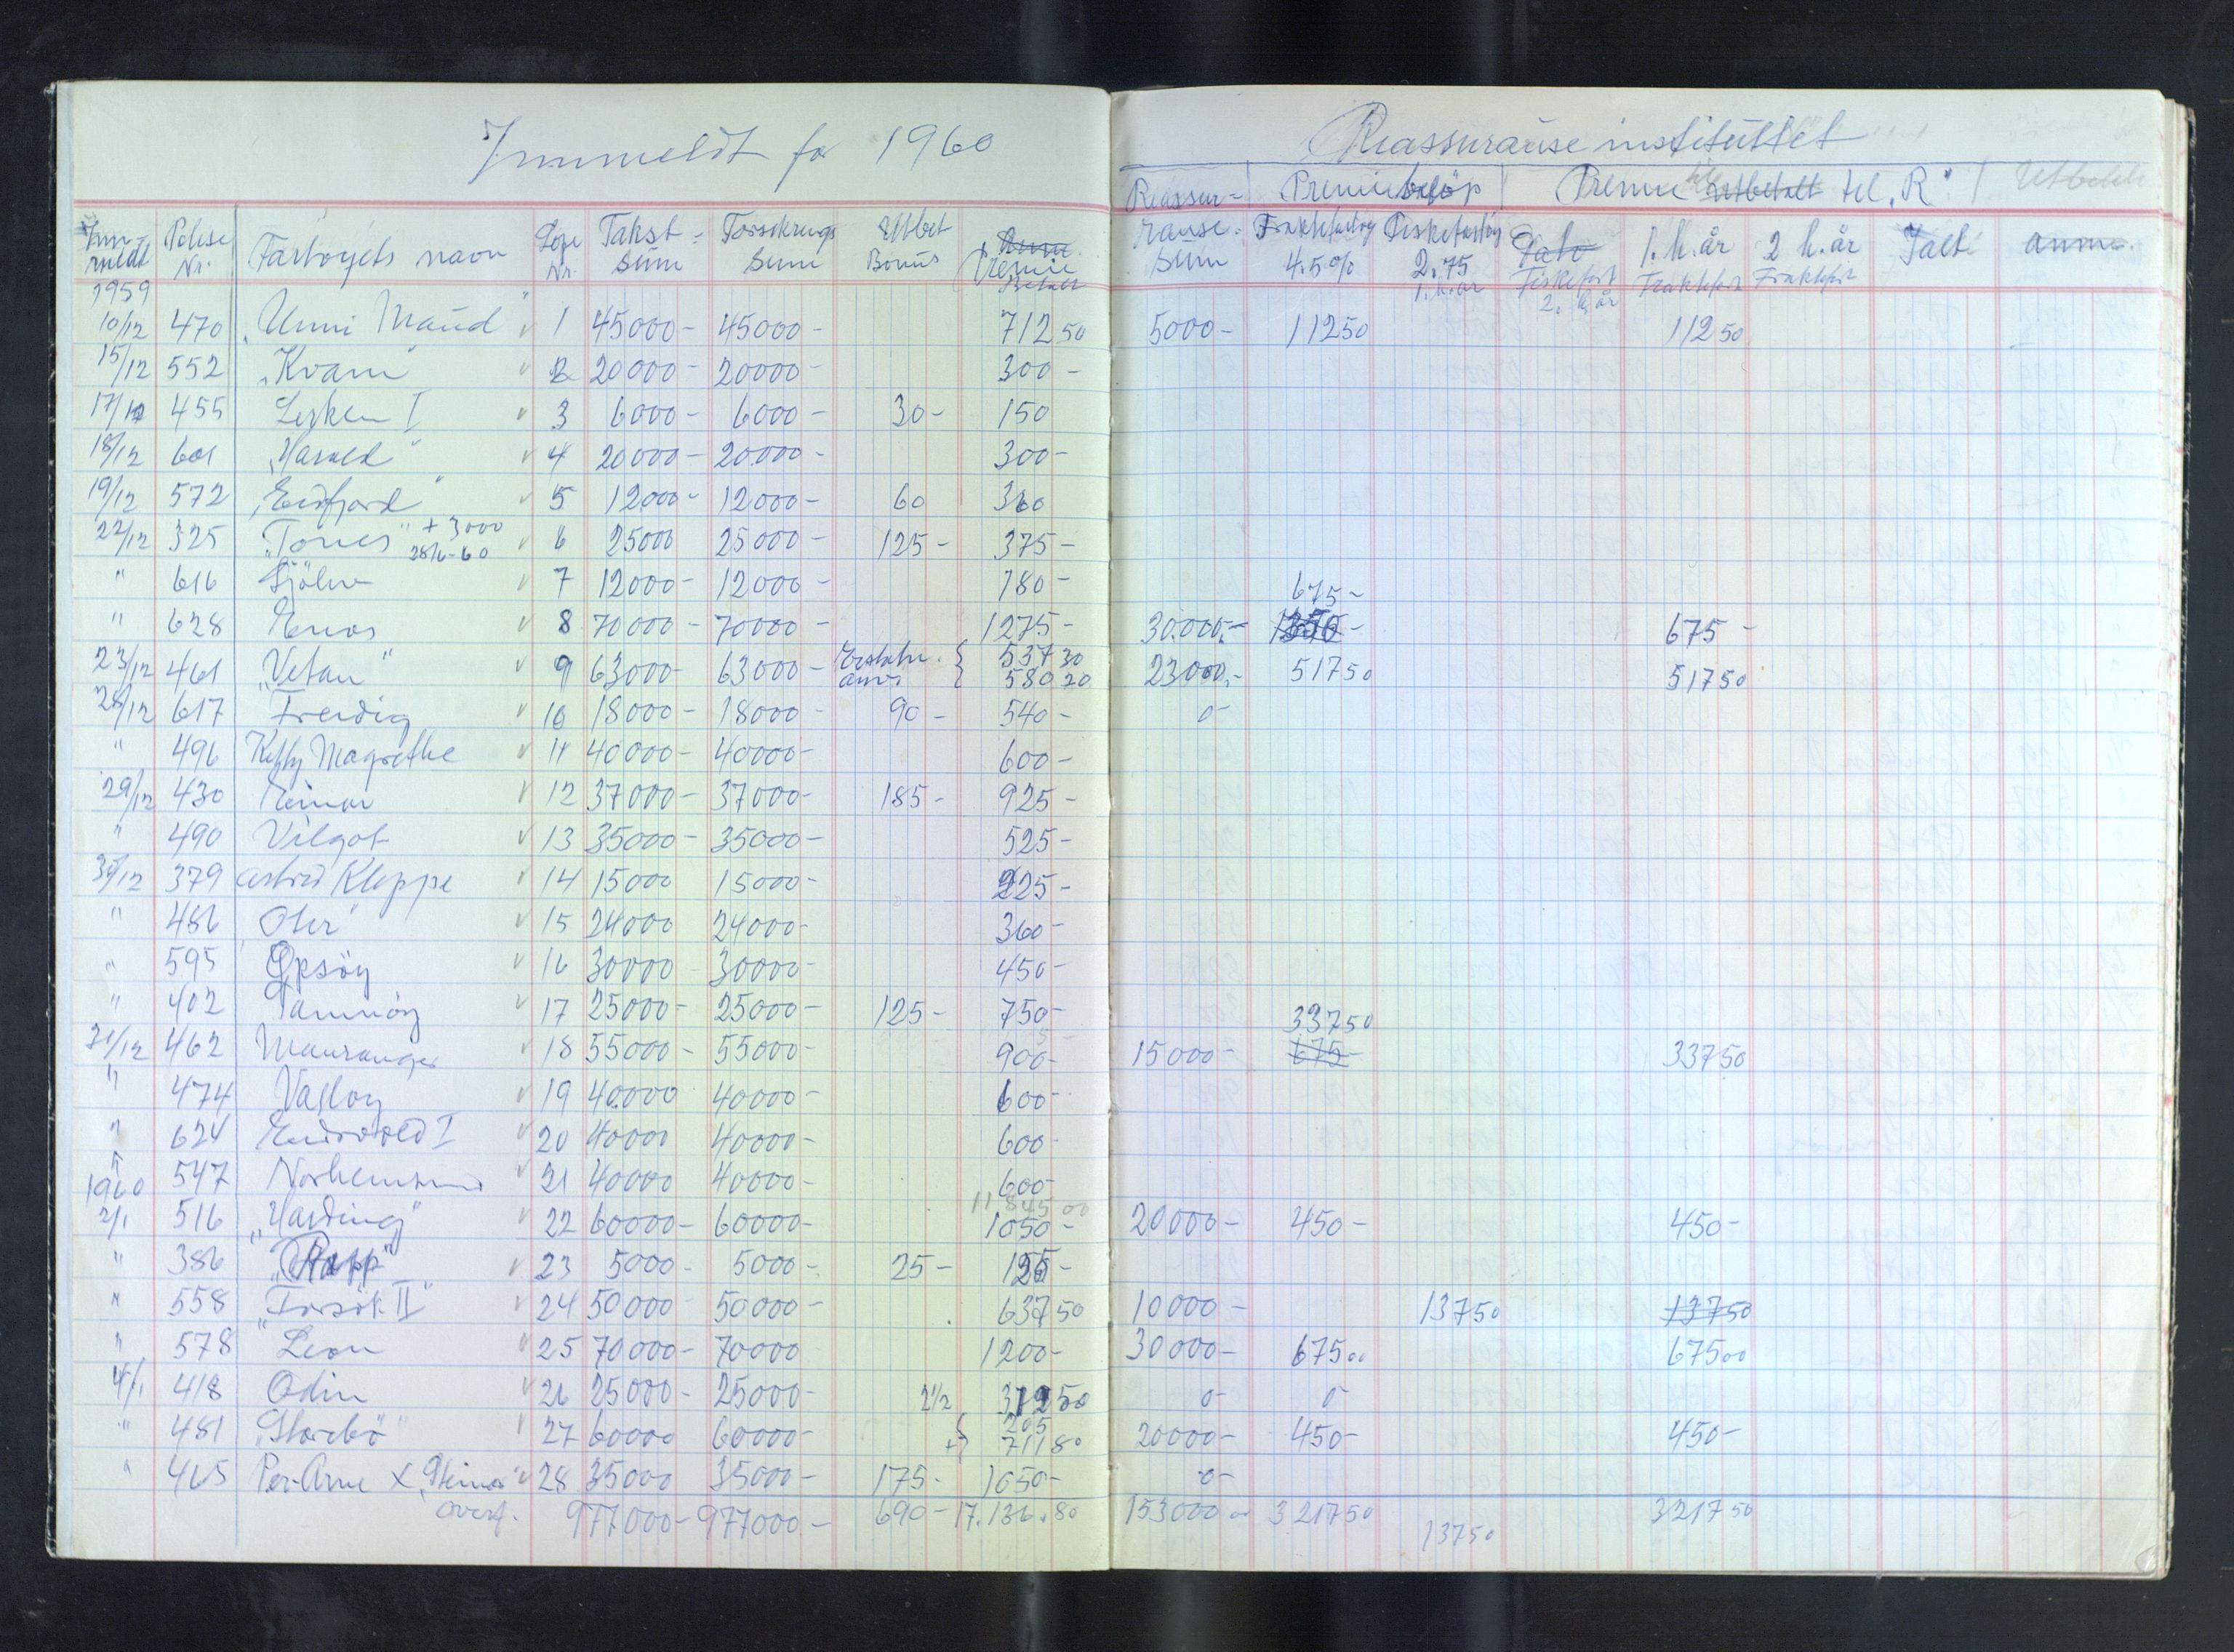 Innmeldt for 1960
Reassuranse instituttet
Reassur= Premiebeløp Premie utbetalt til "R"
Inn- meldt Polise Nr. Fartøyets navn Løpe Nr. Takst= sum Forsikrings sum Utbet Bonus Anm. Premie Betalt ranse= sum Fraktefartøy 4.5% Fiskefartøy 2.75 1. h.år Dato Fiskefart 2. h.år 1. h.år Fraktefart 2 h.år Fraktfart Ialt anm.
1959
10/12 470 "Unni Maud" 1 45000- 45000- 712 50 5000- 112 50 112 50
15/12 552 "Kvam" 2 20000- 20000- 300-
17/12 455 I 3 6000- 6000- 30- 150
18/12 601 "Harald" 4 20000- 20000- 300-
19/12 572 "Eidfjord" 5 12000- 12000- 60 360
22/12 325 "Tones" + 3000 28/6-60 6 25000 25000- 125- 375-
" 616 Gjølen 7 12000- 12000- 180-
675-
" 628 8 70000- 70000- 1275- 30.000,- 1350- 675-
23/12 461 "Vetan" 9 63000- 63000- { 537 30 580 20 23000,- 517 50 517 50
28/12 617 Freidig 10 18000- 18000- 90- 540- 0-
" 496 Magrethe 11 40000- 40000- 600-
29/12 430 Einar 12 37000- 37000- 185- 925-
" 490 Vilgot 13 35000- 35000- 525-
30/12 379 Astrid Kleppe 14 15000 15000- 225-
" 486 Oter 15 24000 24000- 360-
" 595 Opsøy 16 30000 30000- 450-
" 402 17 25000- 25000- 125- 750-
337 50
31/12 462 Mauranger 18 55000- 55000- 900- 15000- 675- 337 50
" 474 19 40000 40000- 600-
" 624 Eidsvold I 20 40000 40000- 600-
" 547 Norheimsund 21 40000 40000- 600-
11845 00
1960
2/1 516 "Harding" 22 60000- 60000- 1050- 20000- 450- 450-
" 386 "Rapp" 23 5000- 5000- 25- 125-
" 558 "Forsøk II" 24 50000- 50000- 637 50 10000- 137 50 137 50
" 578 Leon 25 70000- 70000 1200- 30000- 675 00 675 00
4/1 418 Odin 26 25000- 25000- 2 1/2 312 50 0- 0-
" 481 "Storebø" 27 60000 60000- { 205 + 711 80 20000- 450- 450-
" 465 Per-Arne X "Steinar" 28 35000 35000- 175- 1050- 0-
overf. 977000- 977000- 690- 17.136.80 153000 3217 50 137 50 3217 50